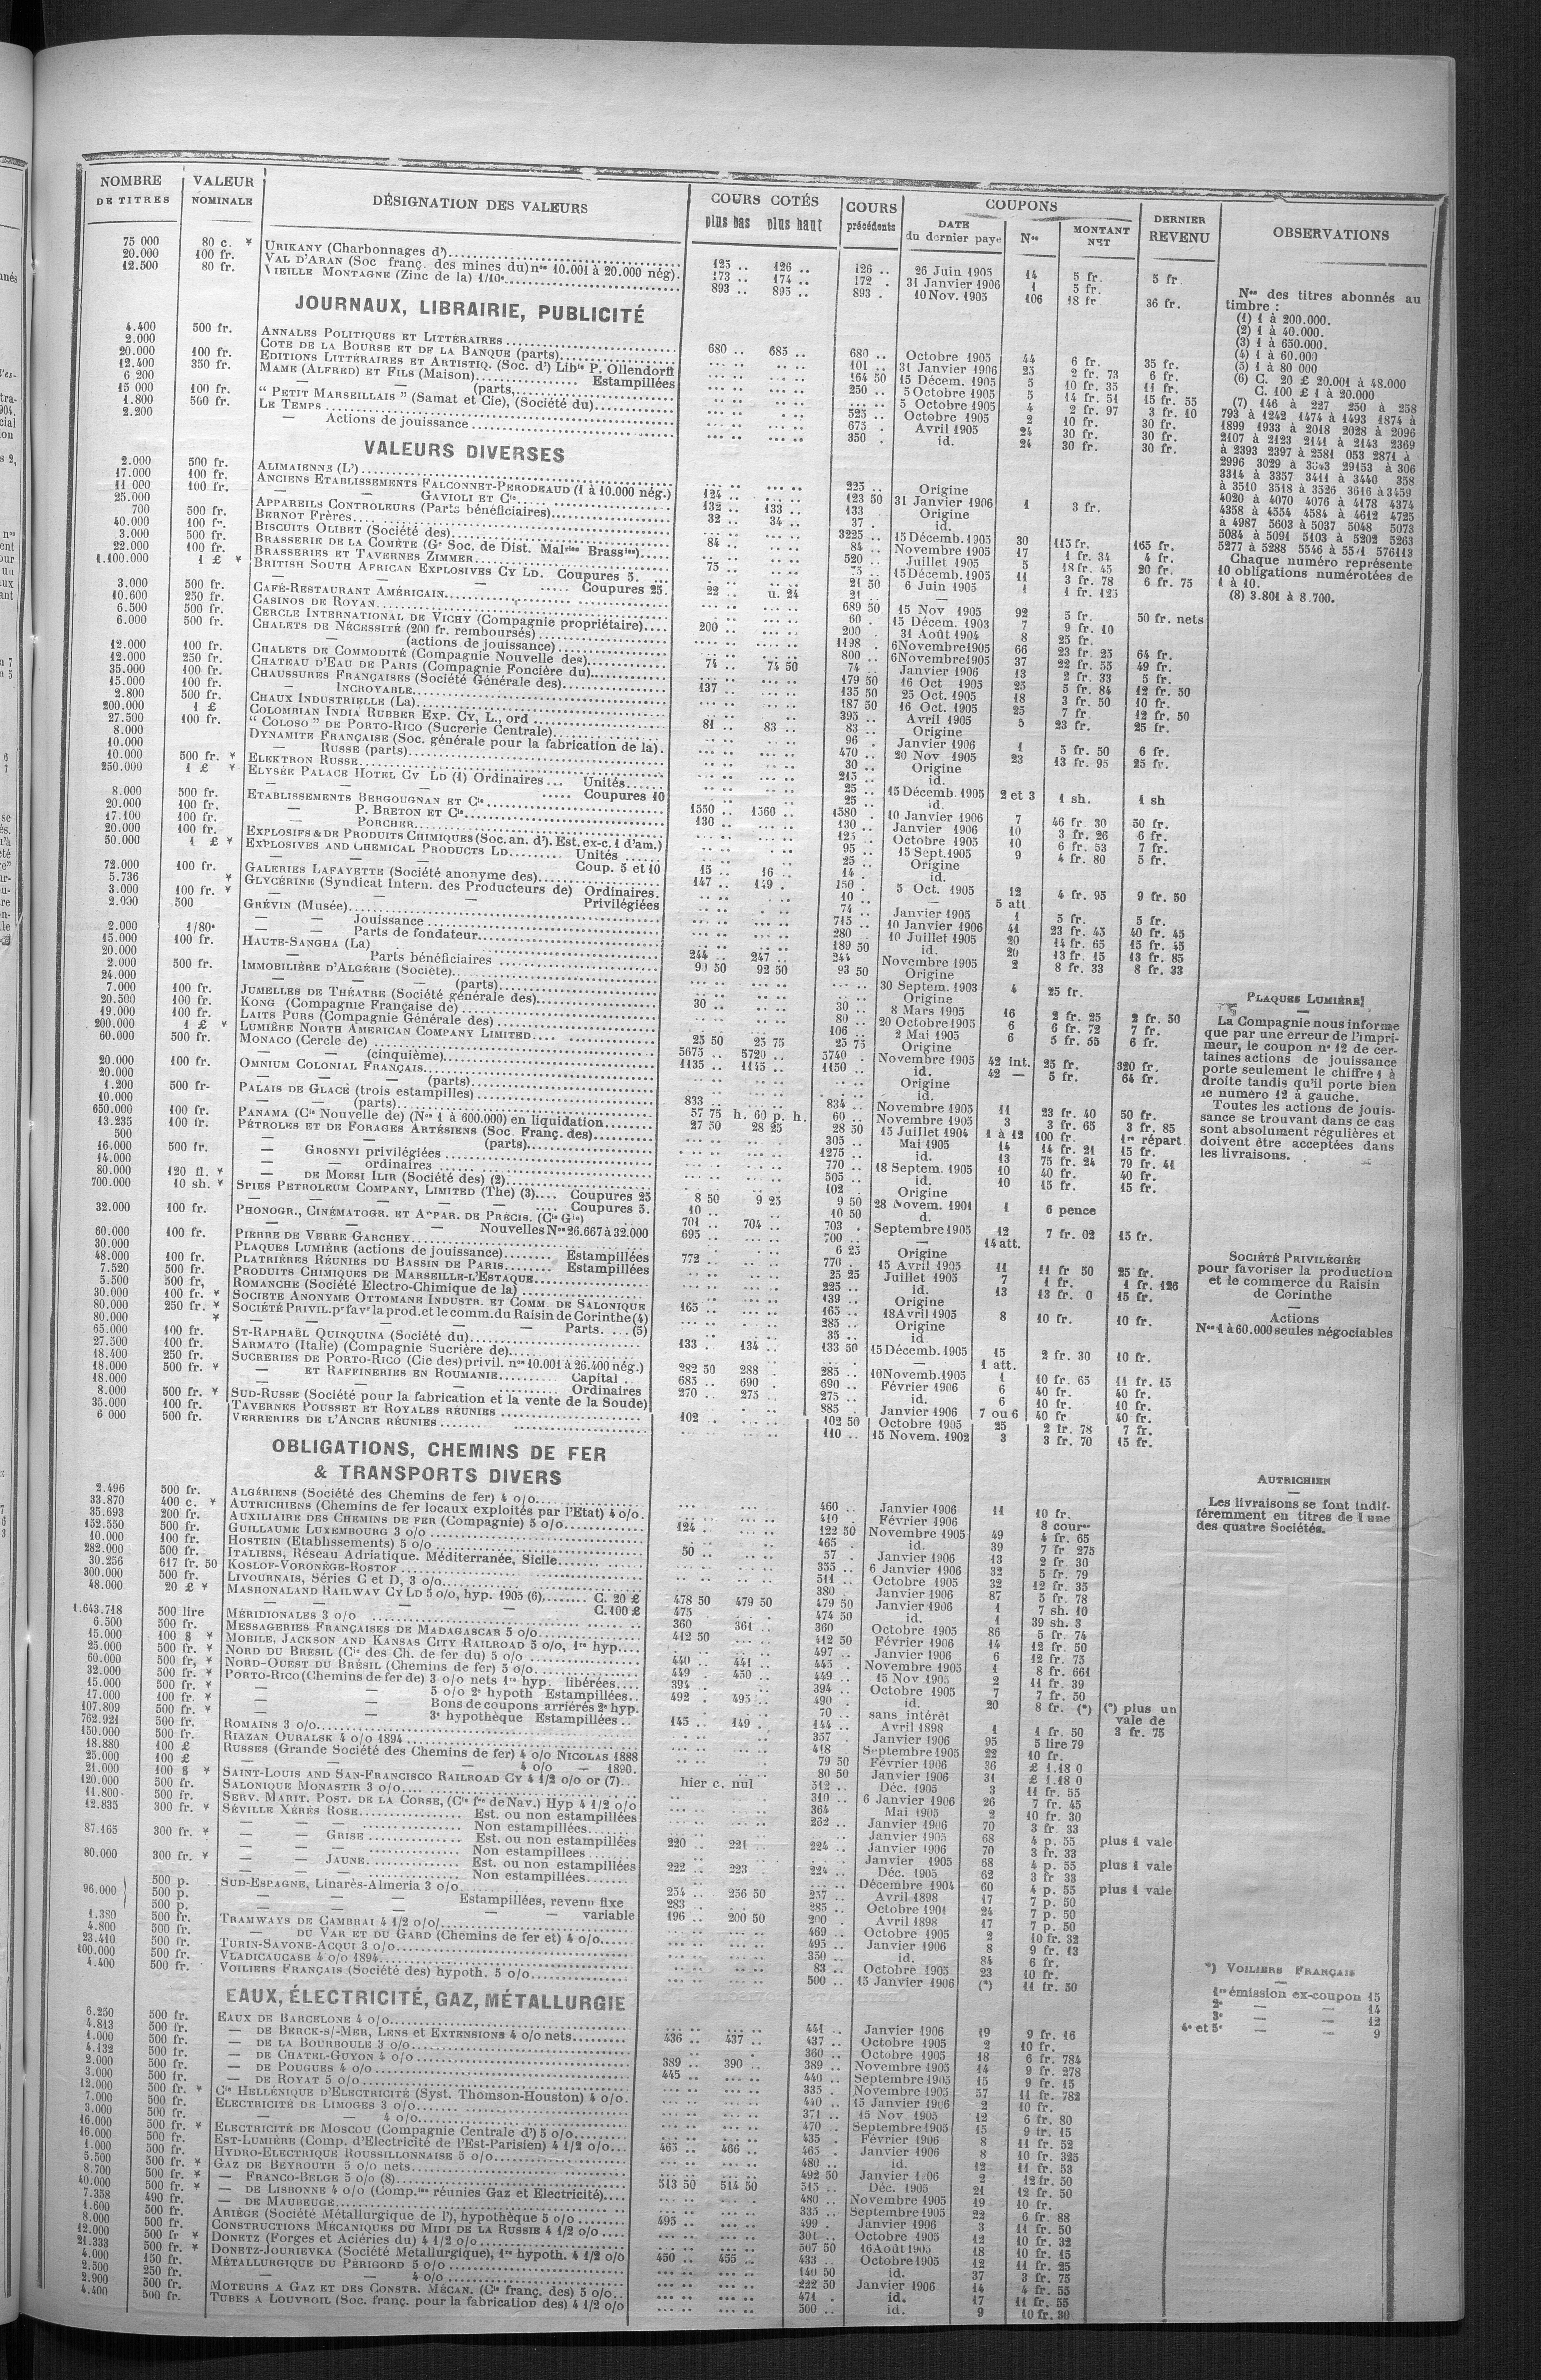 NOMBRE DE TITRES | VALEUR NOMINALE | DÉSIGNATION DES VALEURS | COURS COTÉS plus bas plus haut | COURS précédents | COUPONS DATE du dernier payé | Nos | MONTANT NET | DERNIER REVENU | OBSERVATIONS
75 000 80 c. * URIKANY (Charbonnages d') 125 .. 126 .. 126 .. 26 Juin 1905 14 5 fr. 5 fr.
20.000 100 fr. VAL D'ARAN (Soc franç. des mines du) nos 10.001 à 20.000 nég). 173 .. 174 .. 172 . 31 Janvier 1906 1 5 fr.
12.500 80 fr. VIEILLE MONTAGNE (Zinc de la) 1/10e 893 .. 895 .. 893 . 10 Nov. 1905 106 18 fr 36 fr.
JOURNAUX, LIBRAIRIE, PUBLICITÉ
4.400 500 fr. ANNALES POLITIQUES ET LITTÉRAIRES 680 .. 685 .. 680 .. Octobre 1905 44 6 fr. 35 fr.
2.000 COTE DE LA BOURSE ET DE LA BANQUE (parts) 101 .. 31 Janvier 1906 25 2 fr. 73 6 fr.
20.000 100 fr. EDITIONS LITTÉRAIRES ET ARTISTIQ. (Soc. d') Libie P. Ollendorff 164 50 15 Décem. 1905 5 10 fr. 35 11 fr.
12.400 350 fr. MAME (ALFRED) ET FILS (Maison) Estampillées 250 .. 5 Octobre 1905 5 14 fr. 51 15 fr. 55
6 200 — — (parts, 5 Octobre 1905 4 2 fr. 97 3 fr. 10
15 000 100 fr. “ PETIT MARSEILLAIS ” (Samat et Cie), (Société du) 525 .. Octobre 1905 2 10 fr. 30 fr.
1.800 500 fr. LE TEMPS 675 . Avril 1905 24 30 fr. 30 fr.
2.200 — Actions de jouissance 350 . id. 24 30 fr. 30 fr.
VALEURS DIVERSES
2.000 500 fr. ALIMAIENNE (L') 225 .. Origine
17.000 100 fr. ANCIENS ETABLISSEMENTS FALCONNET-PERODEAUD (1 à 10.000 nég.) 124 .. 123 50 31 Janvier 1906 1 3 fr.
11 000 100 fr. — — GAVIOLI ET Cie 132 .. 133 .. 133 Origine
25.000 APPAREILS CONTROLEURS (Parts bénéficiaires) 32 .. 34 .. 37 . id.
700 500 fr. BERNOT FRÈRES 3225 .. 15 Décemb. 1905 30 115 fr. 165 fr.
40.000 100 fr. BISCUITS OLIBET (Société des) 84 .. 84 .. Novembre 1905 17 1 fr. 34 4 fr.
3.000 500 fr. BRASSERIE DE LA COMÈTE (Ge Soc. de Dist. Malries Brassies) 520 .. Juillet 1905 5 18 fr. 45 20 fr.
22.000 100 fr. BRASSERIES ET TAVERNES ZIMMER 75 .. 75 .. 15 Décemb. 1905 11 3 fr. 78 6 fr. 75
1.100.000 1 £ * BRITISH SOUTH AFRICAN EXPLOSIVES CY LD. Coupures 5. 21 50 6 Juin 1905 1 1 fr. 125
— — Coupures 25. 22 .. u. 24 21 .. —
3.000 500 fr. CAFÉ-RESTAURANT AMÉRICAIN 689 50 15 Nov 1905 92 5 fr. 50 fr. nets
10.600 250 fr. CASINOS DE ROYAN 60 . 15 Décem. 1903 7 9 fr. 10
6.500 500 fr. CERCLE INTERNATIONAL DE VICHY (Compagnie propriétaire) 200 .. 200 . 31 Août 1904 8 25 fr.
6.000 500 fr. CHALETS DE NÉCESSITÉ (200 fr. remboursés) 1198 . 6 Novembre 1905 66 23 fr. 25 64 fr.
— (actions de jouissance) 800 .. 6 Novembre 1905 37 22 fr. 55 49 fr.
12.000 100 fr. CHALETS DE COMMODITÉ (Compagnie Nouvelle des) 74 .. 74 50 74 .. Janvier 1906 13 2 fr. 33 5 fr.
12.000 250 fr. CHATEAU D'EAU DE PARIS (Compagnie Foncière du) 179 50 16 Oct 1905 25 5 fr. 84 12 fr. 50
35.000 100 fr. CHAUSSURES FRANÇAISES (Société Générale des) 137 .. 135 50 25 Oct. 1905 18 3 fr. 50 10 fr.
15.000 100 fr. — INCROYABLE 187 50 16 Oct. 1905 25 7 fr. 12 fr. 50
2.800 500 fr. CHAUX INDUSTRIELLE (La) 395 .. Avril 1905 5 23 fr. 25 fr.
200.000 1 £ COLOMBIAN INDIA RUBBER EXP. CY, L., ord 81 .. 83 .. 83 .. Origine
27.500 100 fr. “ COLOSO ” DE PORTO-RICO (Sucrerie Centrale) 96 . Janvier 1906 1 5 fr. 50 6 fr.
8.000 DYNAMITE FRANÇAISE (Soc. générale pour la fabrication de la). 470 .. 20 Nov 1905 23 13 fr. 95 25 fr.
10.000 — RUSSE (parts) 30 .. Origine
10.000 500 fr. * ELEKTRON RUSSE 215 .. id.
250.000 1 £ * ELYSÉE PALACE HOTEL CY LD (1) Ordinaires ... Unités 25 .. 15 Décemb. 1905 2 et 3 1 sh. 1 sh
— — Coupures 10 25 .. id.
8.000 500 fr. ETABLISSEMENTS BERGOUGNAN ET Cie 1550 .. 1560 .. 1580 . 10 Janvier 1906 7 46 fr 30 50 fr.
20.000 100 fr. — P. BRETON ET Cie 130 .. 130 .. Janvier 1906 10 3 fr. 26 6 fr.
17.100 100 fr. — PORCHER 125 . Octobre 1905 10 6 fr. 53 7 fr.
20.000 100 fr. EXPLOSIFS & DE PRODUITS CHIMIQUES (Soc. an. d'). Est. ex-c. 1 d'am.) 95 .. 15 Sept. 1905 9 4 fr. 80 5 fr.
50.000 1 £ * EXPLOSIVES AND CHEMICAL PRODUCTS LD Unités 25 .. Origine
— Coup. 5 et 10 15 .. 16 .. 14 . id.
72.000 100 fr. GALERIES LAFAYETTE (Société anonyme des) 147 .. 149 . 150 . 5 Oct. 1905 12 4 fr. 95 9 fr. 50
5.736 * GLYCÉRINE (Syndicat Intern. des Producteurs de) Ordinaires. 10 .. — 5 att
3.000 100 fr. * — — Privilégiées 74 .. Janvier 1905 1 5 fr. 5 fr.
2.030 500 GRÉVIN (Musée) 715 .. 10 Janvier 1906 41 23 fr. 43 40 fr. 45
— — Jouissance 280 10 Juillet 1905 20 14 fr. 65 15 fr. 45
2.000 1/80e — — Parts de fondateur 189 50 id. 20 13 fr. 15 13 fr. 85
15.000 100 fr. HAUTE-SANGHA (La) 244 .. 247 .. 244 Novembre 1905 2 8 fr. 33 8 fr. 33
20.000 — Parts bénéficiaires 90 50 92 50 93 50 Origine
2.000 500 fr. IMMOBILIÈRE D'ALGÉRIE (Société) 30 Septem. 1903 4 25 fr.
24.000 — — (parts) Origine
7.000 100 fr. JUMELLES DE THÉATRE (Société générale des) 30 .. 30 .. 8 Mars 1905 16 2 fr. 25 2 fr. 50
20.500 100 fr. KONG (Compagnie Française de) 80 .. 20 Octobre 1905 6 6 fr. 72 7 fr.
19.000 100 fr. LAITS PURS (Compagnie Générale des) 106 .. 2 Mai 1905 6 5 fr. 65 6 fr.
200.000 1 £ * LUMIÈRE NORTH AMERICAN COMPANY LIMITED 25 50 25 75 25 75 Origine
60.000 500 fr. MONACO (Cercle de) 5675 .. 5720 .. 5740 . Novembre 1905 42 int. 25 fr. 320 fr.
— — (cinquième) 1135 .. 1145 .. 1150 .. id. 42 — 5 fr. 64 fr.
20.000 100 fr. OMNIUM COLONIAL FRANÇAIS Origine
20.000 — — (parts) id.
1.200 500 fr- PALAIS DE GLACE (trois estampilles) 833 .. 834 .. Novembre 1905 11 23 fr. 40 50 fr.
10.000 — — (parts) 57 75 h. 60 p. h. 60 .. Novembre 1905 3 3 fr. 65 3 fr. 85
650.000 100 fr. PANAMA (Cie Nouvelle de) (Nos 1 à 600.000) en liquidation 27 50 28 25 28 50 15 Juillet 1904 1 à 12 100 fr. 1re répart.
13.235 100 fr. PÉTROLES ET DE FORAGES ARTÉSIENS (Soc. Franç. des) 305 .. Mai 1905 14 14 fr. 21 15 fr.
500 — — (parts) 1275 .. id. 13 75 fr. 24 79 fr. 41
16.000 500 fr. — GROSNYI privilégiées 770 .. 18 Septem. 1905 10 40 fr. 40 fr.
14.000 — — ordinaires 505 .. id. 10 15 fr. 15 fr.
80.000 120 fl. * — DE MOESI ILIR (Société des) (2) 102 . Origine
700.000 10 sh. * SPIES PETROLEUM COMPANY, LIMITED (The) (3) Coupures 25 8 50 9 25 9 50 28 Novem. 1901 1 6 pence
— — Coupures 5. 10 .. 10 50 d.
32.000 100 fr. PHONOGR., CINÉMATOGR. ET APPAR. DE PRÉCIS. (Cie Gle) 701 .. 704 .. 703 . Septembre 1905 12 7 fr. 02 15 fr.
— — Nouvelles Nos 26.667 à 32.000 695 .. 700 .. — 14 att.
60.000 100 fr. PIERRE DE VERRE GARCHEY 6 25 Origine
30.000 PLAQUES LUMIÈRE (actions de jouissance) Estampillées 772 .. 770 . 15 Avril 1905 11 11 fr 50 25 fr.
48.000 100 fr. PLATRIÈRES RÉUNIES DU BASSIN DE PARIS Estampillées 25 25 Juillet 1905 7 1 fr. 1 fr. 126
7.520 500 fr. PRODUITS CHIMIQUES DE MARSEILLE-L'ESTAQUE 225 .. id. 13 13 fr. 0 15 fr.
5.500 500 fr, ROMANCHE (Société Electro-Chimique de la) 139 .. Origine
30.000 100 fr. * SOCIETE ANONYME OTTOMANE INDUSTR. ET COMM. DE SALONIQUE 165 .. 165 .. 18 Avril 1905 8 10 fr. 10 fr.
80.000 250 fr. * SOCIÉTÉ PRIVIL. pr favr la prod. et le comm. du Raisin de Corinthe (4) 285 .. Origine
80.000 * — — Parts. ... (5) 35 .. id.
65.000 100 fr. ST-RAPHAËL QUINQUINA (Société du) 133 . 134 .. 133 50 15 Décemb. 1905 15 2 fr. 30 10 fr.
27.500 100 fr. SARMATO (Italie) (Compagnie Sucrière de) — 1 att.
18.400 250 fr. SUCRERIES DE PORTO-RICO (Cie des) privil. nos 10.001 à 26.400 nég.) 282 50 288 . 285 .. 10 Novemb. 1905 1 10 fr. 65 11 fr. 15
18.000 500 fr. * — ET RAFFINERIES EN ROUMANIE Capital .. 685 .. 690 . 690 .. Février 1906 6 40 fr. 40 fr.
18.000 — — Ordinaires 270 .. 275 .. 275 .. id. 6 10 fr. 10 fr.
8.000 500 fr. * SUD-RUSSE (Société pour la fabrication et la vente de la Soude) 885 . Janvier 1906 7 ou 6 40 fr 40 fr.
35.000 100 fr. TAVERNES POUSSET ET ROYALES RÉUNIES 102 . 102 50 Octobre 1905 25 2 fr. 78 7 fr.
6 000 500 fr. VERRERIES DE L'ANCRE RÉUNIES 110 .. 15 Novem. 1902 3 3 fr. 70 15 fr.
OBLIGATIONS, CHEMINS DE FER
& TRANSPORTS DIVERS
2.496 500 fr. ALGÉRIENS (Société des Chemins de fer) 4 o/o 460 .. Janvier 1906 11 10 fr.
33.870 400 c. * AUTRICHIENS (Chemins de fer locaux exploités par l'Etat) 4 o/o. 410 .. Février 1906 8 coures
35.693 200 fr. AUXILIAIRE DES CHEMINS DE FER (Compagnie) 5 o/o 124 . 122 50 Novembre 1905 49 4 fr. 65
152.550 500 fr. GUILLAUME LUXEMBOURG 3 o/o 465 . id. 39 7 fr 275
10.000 100 fr. HOSTEIN (Etablissements) 5 o/o 50 .. 57 . Janvier 1906 13 2 fr. 30
282.000 500 fr. ITALIENS, Réseau Adriatique. Méditerranée, Sicile 355 .. 6 Janvier 1906 32 5 fr. 79
30.256 617 fr. 50 KOSLOF-VORONÈGE-ROSTOF 511 .. Octobre 1905 32 12 fr. 35
300.000 500 fr. LIVOURNAIS, Séries C et D, 3 o/o 380 . Janvier 1906 87 5 fr. 78
48.000 20 £ * MASHONALAND RAILWAY CY LD 5 o/o, hyp. 1905 (6) C. 20 £ 478 50 479 50 479 50 Janvier 1906 1 7 sh. 10
— — C. 100 £ 475 474 50 id. 1 39 sh. 3
1.643.718 500 lire MÉRIDIONALES 3 o/o 360 361 .. 360 Octobre 1905 86 5 fr. 74
6.500 500 fr. MESSAGERIES FRANÇAISES DE MADAGASCAR 5 o/o 412 50 412 50 Février 1906 14 12 fr. 50
15.000 100 $ * MOBILE, JACKSON AND KANSAS CITY RAILROAD 5 o/o, 1re hyp 497 .. Janvier 1906 6 12 fr. 75
25.000 500 fr. * NORD DU BRÉSIL (Cie des Ch. de fer du) 5 o/o 440 .. 441 .. 445 . Novembre 1905 1 8 fr. 661
60.000 500 fr, * NORD-OUEST DU BRÉSIL (Chemins de fer) 5 o/o 449 . 450 .. 449 .. 15 Nov 1905 2 11 fr. 39
32.000 500 fr. * PORTO-RICO (Chemins de fer de) 3 o/o nets 1re hyp. libérées 394 .. 394 .. Octobre 1905 7 7 fr. 50
15.000 500 fr. * — — 5 o/o 2e hypoth Estampillées.. 492 . 495 .. 490 . id. 20 8 fr. (*) (*) plus un
17.000 100 fr. * — — Bons de coupons arriérés 2e hyp. 70 .. sans intérêt vale de
107.809 500 fr. * — — 3e hypothèque Estampillées .. 145 .. 149 . 144 .. Avril 1898 1 1 fr. 50 3 fr. 75
762.921 500 fr. ROMAINS 3 o/o 357 . Janvier 1906 95 5 lire 79
150.000 500 fr. RIAZAN OURALSK 4 o/o 1894 418 Septembre 1905 22 10 fr.
18.880 100 £ RUSSES (Grande Société des Chemins de fer) 4 o/o NICOLAS 1888 79 50 Février 1906 36 £ 1.18 0
25.000 100 £ — — 4 o/o — 1890. 80 50 Janvier 1906 31 £ 1.18 0
21.000 100 $ * SAINT-LOUIS AND SAN-FRANCISCO RAILROAD CY 4 1/2 o/o or (7).. hier c. nul 512 .. Déc. 1905 3 11 fr. 55
120.000 500 fr. SALONIQUE MONASTIR 3 o/o 310 .. 6 Janvier 1906 26 7 fr. 45
11.800 500 fr. SERV. MARIT. POST. DE LA CORSE, (Cie fse de Nav.) Hyp 4 1/2 o/o 364 Mai 1905 2 10 fr. 30
12.835 300 fr. * SÉVILLE XÉRÈS ROSE Est. ou non estampillées 262 .. Janvier 1906 70 3 fr. 33
— — Non estampillées Janvier 1905 68 4 p. 55 plus 1 vale
87.165 300 fr. * — — GRISE Est. ou non estampillées 220 .. 221 .. 224 .. Janvier 1906 70 3 fr. 33
— — Non estampillees Janvier 1905 68 4 p. 55 plus 1 vale
80.000 300 fr. * — — JAUNE Est. ou non estampillées 222 .. 223 .. 224 .. Déc. 1905 62 3 fr 33
— — Non estampillées Décembre 1904 60 4 p. 55 plus 1 vale
96.000 500 p. SUD-ESPAGNE, Linarès-Almeria 3 o/o 254 .. 256 50 257 .. Avril 1898 17 7 p. 50
500 p. — — Estampillées, revenu fixe 283 . 285 .. Octobre 1901 24 7 p. 50
500 p. — — variable 196 .. 200 50 200 . Avril 1898 17 7 p. 50
1.380 500 fr. TRAMWAYS DE CAMBRAI 4 1/2 o/o 469 .. Octobre 1905 2 10 fr. 32
4.800 500 fr. — DU VAR ET DU GARD (Chemins de fer et) 4 o/o 495 .. Janvier 1906 8 9 fr. 13
23.410 500 fr. TURIN-SAVONE-ACQUI 3 o/o 350 .. id. 84 6 fr.
100.000 500 fr. VLADICAUCASE 4 o/o 1894 83 .. Octobre 1905 23 10 fr.
4.400 500 fr. VOILIERS FRANÇAIS (Société des) hypoth. 5 o/o 500 .. 15 Janvier 1906 (*) 11 fr. 50
EAUX, ÉLECTRICITÉ, GAZ, MÉTALLURGIE
6.250 500 fr. EAUX DE BARCELONE 4 o/o 441 .. Janvier 1906 19 9 fr. 16
4.813 500 fr. — DE BERCK-S/-MER, LENS et EXTENSIONS 4 o/o nets 436 .. 437 .. 437 .. Octobre 1905 2 10 fr.
1.000 500 fr. — DE LA BOURBOULE 3 o/o 360 .. Octobre 1905 18 6 fr. 784
4.132 500 fr. — DE CHATEL-GUYON 4 o/o 389 .. 390 .. 389 .. Novembre 1905 14 9 fr. 278
2.000 500 fr. — DE POUGUES 4 o/o 445 .. 440 .. Septembre 1905 15 9 fr. 15
3.000 500 fr. — DE ROYAT 5 o/o 335 . Novembre 1905 57 11 fr. 782
12.000 500 fr. * Cie HELLÉNIQUE D'ELECTRICITÉ (Syst. Thomson-Houston) 4 o/o. 440 .. 15 Janvier 1906 2 10 fr.
7.000 500 fr. ELECTRICITÉ DE LIMOGES 3 o/o 371 .. 15 Nov. 1905 12 6 fr. 80
3.000 500 fr. — — 4 o/o 470 .. Septembre 1905 15 9 fr. 15
16.000 500 fr. * ELECTRICITÉ DE MOSCOU (Compagnie Centrale d') 5 o/o 435 . Février 1906 8 11 fr. 52
16.000 500 fr. EST-LUMIÈRE (Comp. d'Electricité de l'Est-Parisien) 4 1/2 o/o 465 .. 466 .. 465 . Janvier 1906 8 10 fr. 325
1.000 500 fr. HYDRO-ELECTRIQUE ROUSSILLONNAISE 5 o/o 480 .. id. 12 11 fr. 53
5.500 500 fr. * GAZ DE BEYROUTH 5 o/o nets 492 50 Janvier 1906 2 12 fr. 50
8.700 500 fr. * — FRANCO-BELGE 5 o/o (8) 513 50 514 50 515 .. Déc. 1905 21 12 fr. 50
40.000 500 fr. * — DE LISBONNE 4 o/o (Comp.ies réunies Gaz et Electricité) 480 .. Novembre 1905 19 10 fr.
7.358 490 fr. — DE MAUBEUGE 335 .. Septembre 1905 22 6 fr. 88
1.600 500 fr. ARIÈGE (Société Métallurgique de l'), hypothèque 5 o/o 495 .. 499 . Janvier 1906 3 11 fr. 50
8.000 500 fr. CONSTRUCTIONS MÉCANIQUES DU MIDI DE LA RUSSIE 4 1/2 o/o 301 .. Octobre 1905 12 10 fr. 32
12.000 500 fr * DONETZ (Forges et Aciéries du) 4 1/2 o/o 507 50 16 Août 1905 18 10 fr. 15
21.333 500 fr. * DONETZ-JOURIEVKA (Société Metallurgique), 1re hypoth. 4 1/2 o/o 450 .. 455 .. 433 .. Octobre 1905 12 11 fr. 25
4.000 150 fr. MÉTALLURGIQUE DU PÉRIGORD 5 o/o 140 50 id. 37 3 fr. 75
2.500 250 fr. — — 4 o/o 222 50 Janvier 1906 14 4 fr. 55
2.900 500 fr. MOTEURS A GAZ ET DES CONSTR. MÉCAN. (Cie franç. des) 5 o/o 471 . id. 17 11 fr. 55
4.400 500 fr. TUBES A LOUVROIL (Soc. franç. pour la fabrication des) 4 1/2 o/o 500 .. id. 9 10 fr. 30
Nos des titres abonnés au
timbre :
(1) 1 à 200.000.
(2) 1 à 40.000.
(3) 1 à 650.000.
(4) 1 à 60.000
(5) 1 à 80 000
(6) C. 20 £ 20.001 à 48.000
C. 100 £ 1 à 20.000
(7) 146 à 227 250 à 258
793 à 1242 1474 à 1493 1874 à
1899 1933 à 2018 2028 à 2096
2107 à 2123 2141 à 2143 2369
à 2393 2397 à 2581 053 2871 à
2996 3029 à 3043 29153 à 306
3314 à 3357 3411 à 3440 358
à 3510 3518 à 3526 3616 à 3459
4020 à 4070 4076 à 4178 4374
4358 à 4554 4584 à 4612 4725
à 4987 5603 à 5037 5048 5073
5084 à 5091 5103 à 5202 5263
5277 à 5288 5546 à 5541 576113
Chaque numéro représente
10 obligations numérotées de
1 à 10.
(8) 3.801 à 8.700.
PLAQUES LUMIÈRE
La Compagnie nous informe
que par une erreur de l'impri-
meur, le coupon no 12 de cer-
taines actions de jouissance
porte seulement le chiffre 1 à
droite tandis qu'il porte bien
le numéro 12 à gauche.
Toutes les actions de jouis-
sance se trouvant dans ce cas
sont absolument régulières et
doivent être acceptées dans
les livraisons.
SOCIÉTÉ PRIVILÉGIÉE
pour favoriser la production
et le commerce du Raisin
de Corinthe
Actions
Nos 1 à 60.000 seules négociables
AUTRICHIEN
Les livraisons se font indif-
féremment en titres de l une
des quatre Sociétés.
*) VOILIERS FRANÇAIS
1re émission ex-coupon 15
2e — — 14
3e — — 12
4e et 5e — — 9